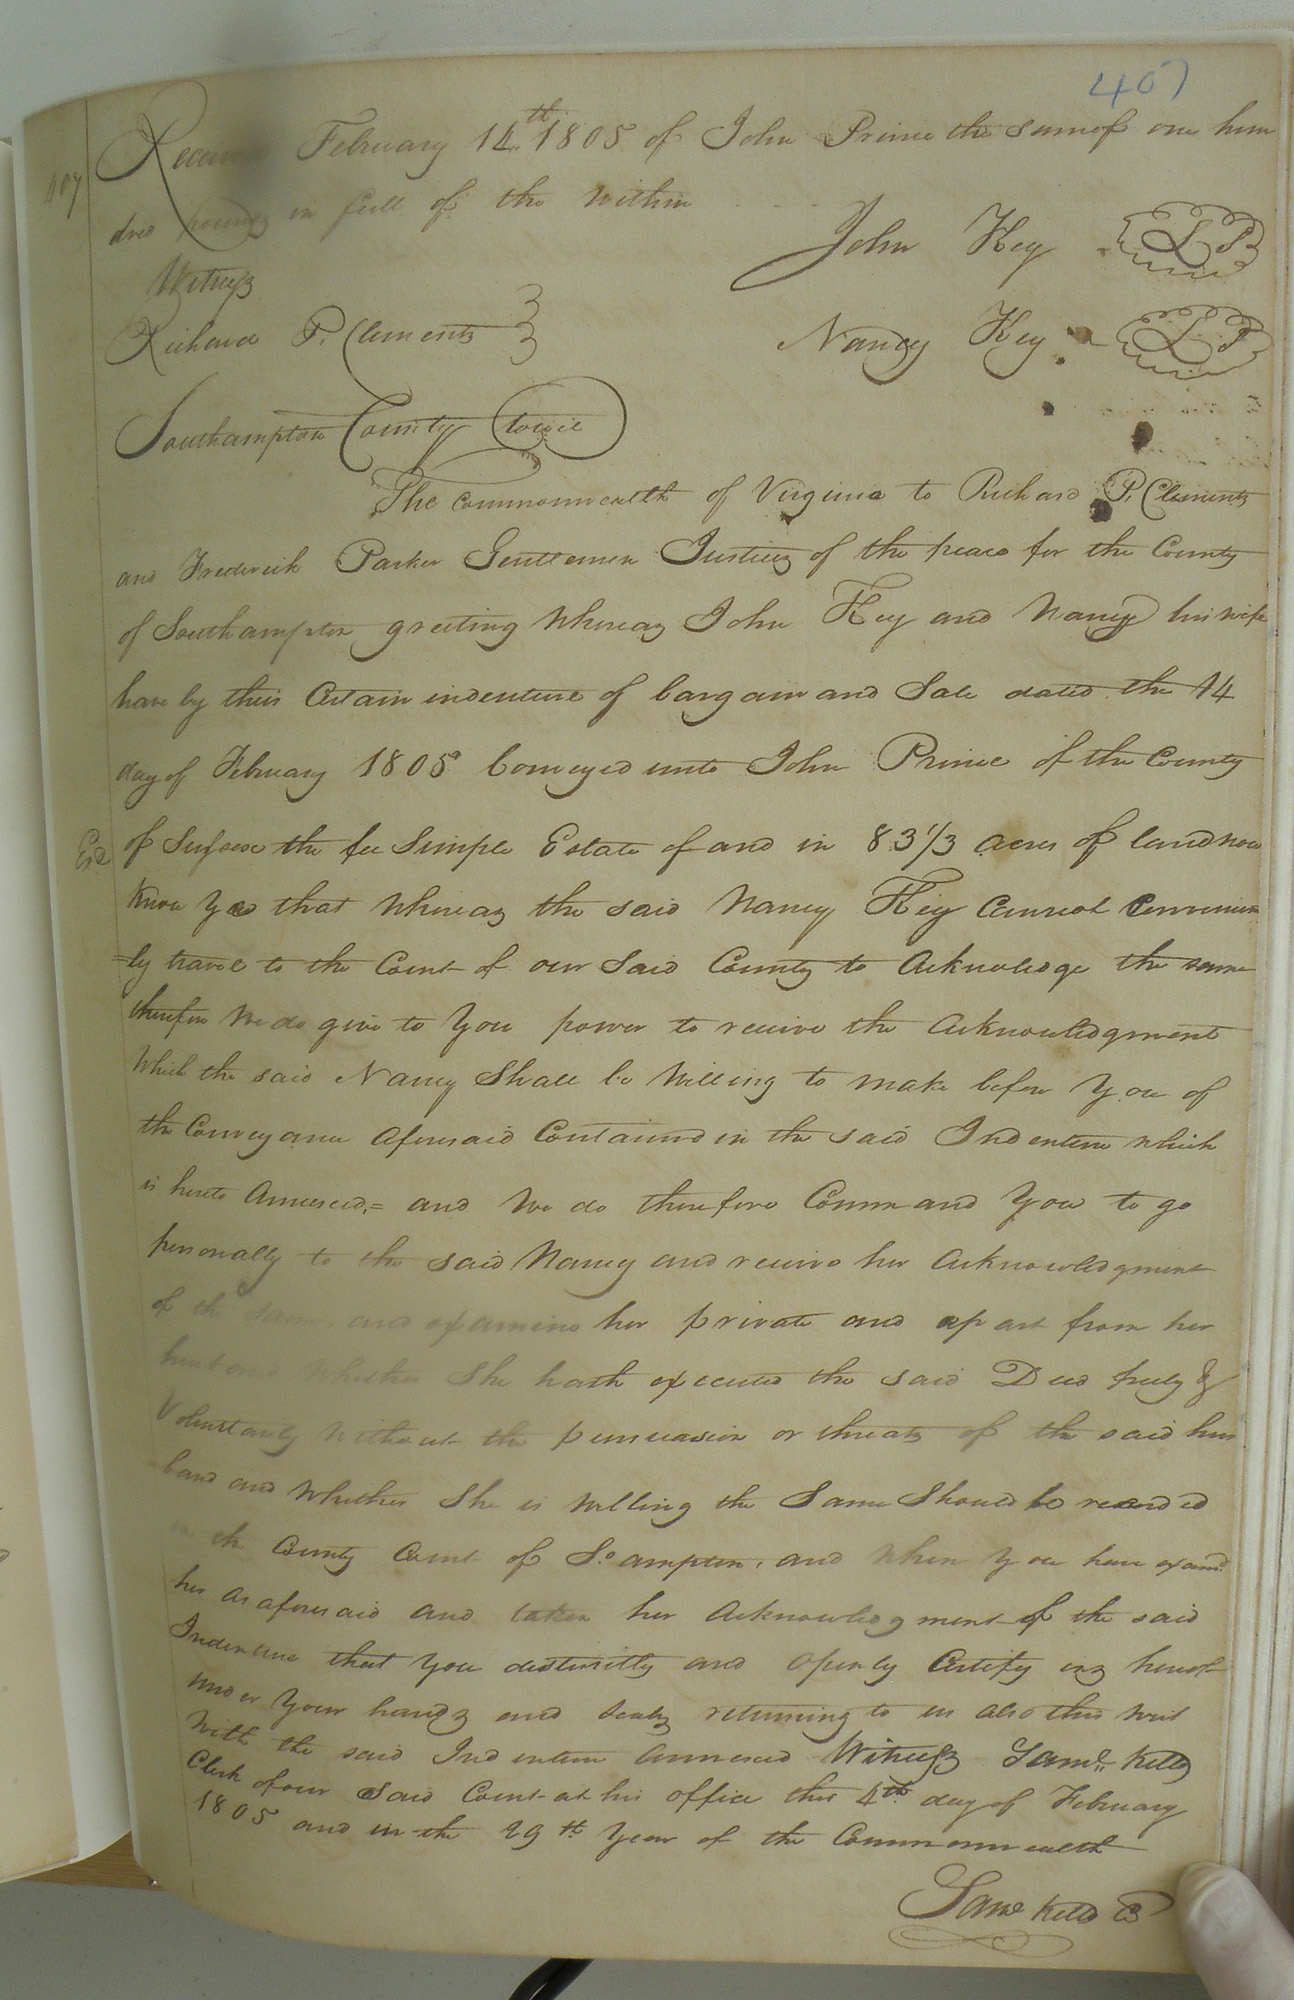 407
407
Received February 14th 1805 of John Prince the sum of one hun
dred pounds in full of the within
John Key L S
Witness
Richard P. Clements
Nancy Key L S
Southampton County towit
The commonwealth of Virginia to Richard P. Clements
and Frederick Parker Gentlemen Justices of the peace for the County
of Southampton greeting Whereas John Key and Nancy his wife
have by their Certain indenture of bargain and Sale dated the 14
day of February 1805 Conveyed unto John Prince of the County
Exd
of Sussex the fee Simple Estate of and in 83 1/3 acres of land now
Know Ye that Whereas the said Nancy Key Cannot Convenien
=ly travel to the Court of our Said County to Acknowledge the same
therefore We do give to You power to receive the Acknowledgment
Which the said Nancy Shall be Willing to make before You of
the Conveyance Aforesaid Contained in the said Indenture which
is hereto Annexed,= and We do therefore Command You to go
personally to the said Nancy and receive her Acknowledgment
of the same, and examine her private and apart from her
husband Whether She hath executed the said Deed freely &
Voluntarily Without the persuasion or threats of the said hus
band and Whether She is Willing the Same Should be recorded
in the County Court of So.ampton, and When You have examd.
her as aforesaid and taken her Acknowledgment of the said
Indenture that You distinctly and openly Certify us hereof
under Your hands and seals returning to us also this writ
With the said Indenture annexed Witness Saml. Kello
Clerk of our Said Court at his office this 4th day of February
1805 and in the 29th Year of the Commonwealth
Saml Kello